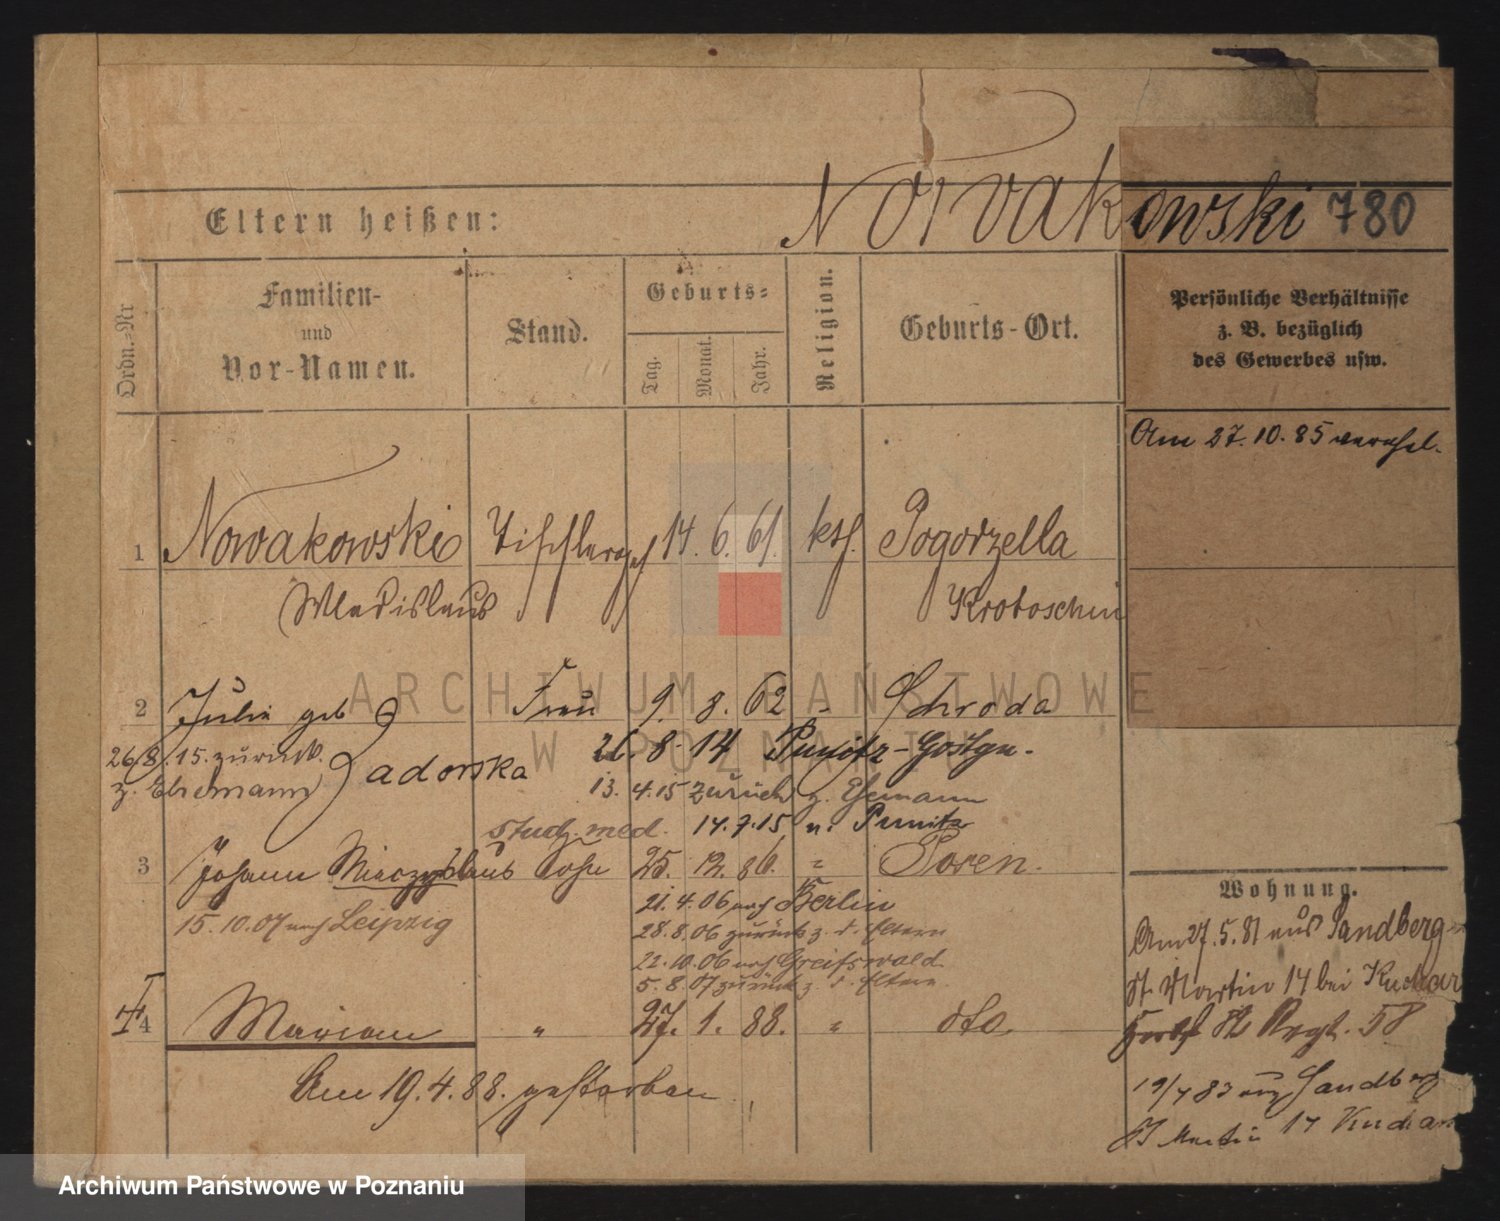 Eltern heißen:
Nowakowski 780
Ordn.-Nr
Familien-
und
Vor-Namen.
Stand.
Geburts-
Tag.
Monat.
Jahr.
Religion.
Geburts-Ort.
Persönliche Verhältnisse
z. B. bezüglich
des Gewerbes usw.
Am 27.10.85 verehel.
1 Nowakowski Tischlerges 14. 6. 61. kth. Pogorzella
Wladislaus Krotoschin
2 Julie geb Frau 9. 8. 62 " Schroda
26/8.15. zurück 26.8.14 Punitz-Gostyn.
z. Ehemann Zadorska 13.4.15 zurück z. Ehemann
stud. med. 14.7.15 n. Punitz
3 Johann Mieczyslaus Sohn 25. 12. 86. " Posen.
21.4.06 nach Berlin
15.10.07 nach Leipzig 28.8.06 zurück z. d. Eltern
22.10.06 nach Greifswald
5.8.07 zurück z. d. Eltern
4 Marian " 27. 1. 88. " dto.
Am 19.4.88. gestorben
Wohnung.
Am 27.5.81 aus Sandberg
St. Martin 14 bei
Regt. 58
19/7 83 aus Sandberg
St Martin 14
ARCHIWUM PAŃSTWOWE
W POZNANIU
Archiwum Państwowe w Poznaniu